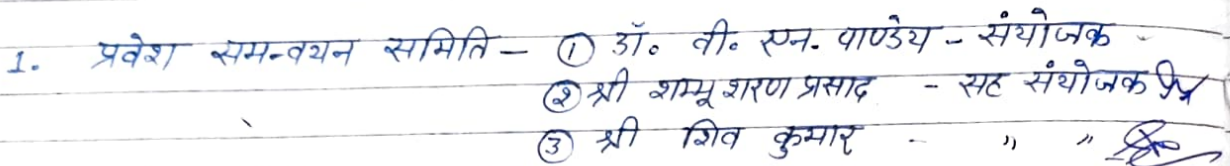 1. प्रवेश समन्वयन समिति - ① डॉ॰ वी॰ एन. पाण्डेय - संयोजक -
② श्री शम्भू शरण प्रसाद - सह संयोजक
③ श्री शिव कुमार - " "